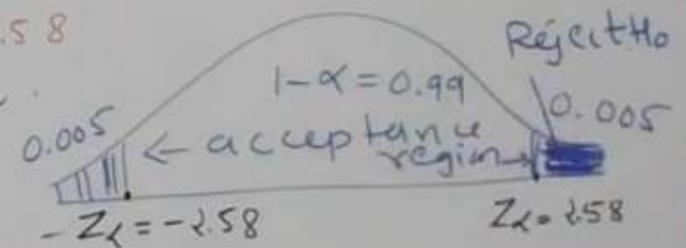 .58
Reject H₀
1-α = 0.99
0.005
0.005
← acceptance
region→
-Zα = -2.58
Zα = 2.58